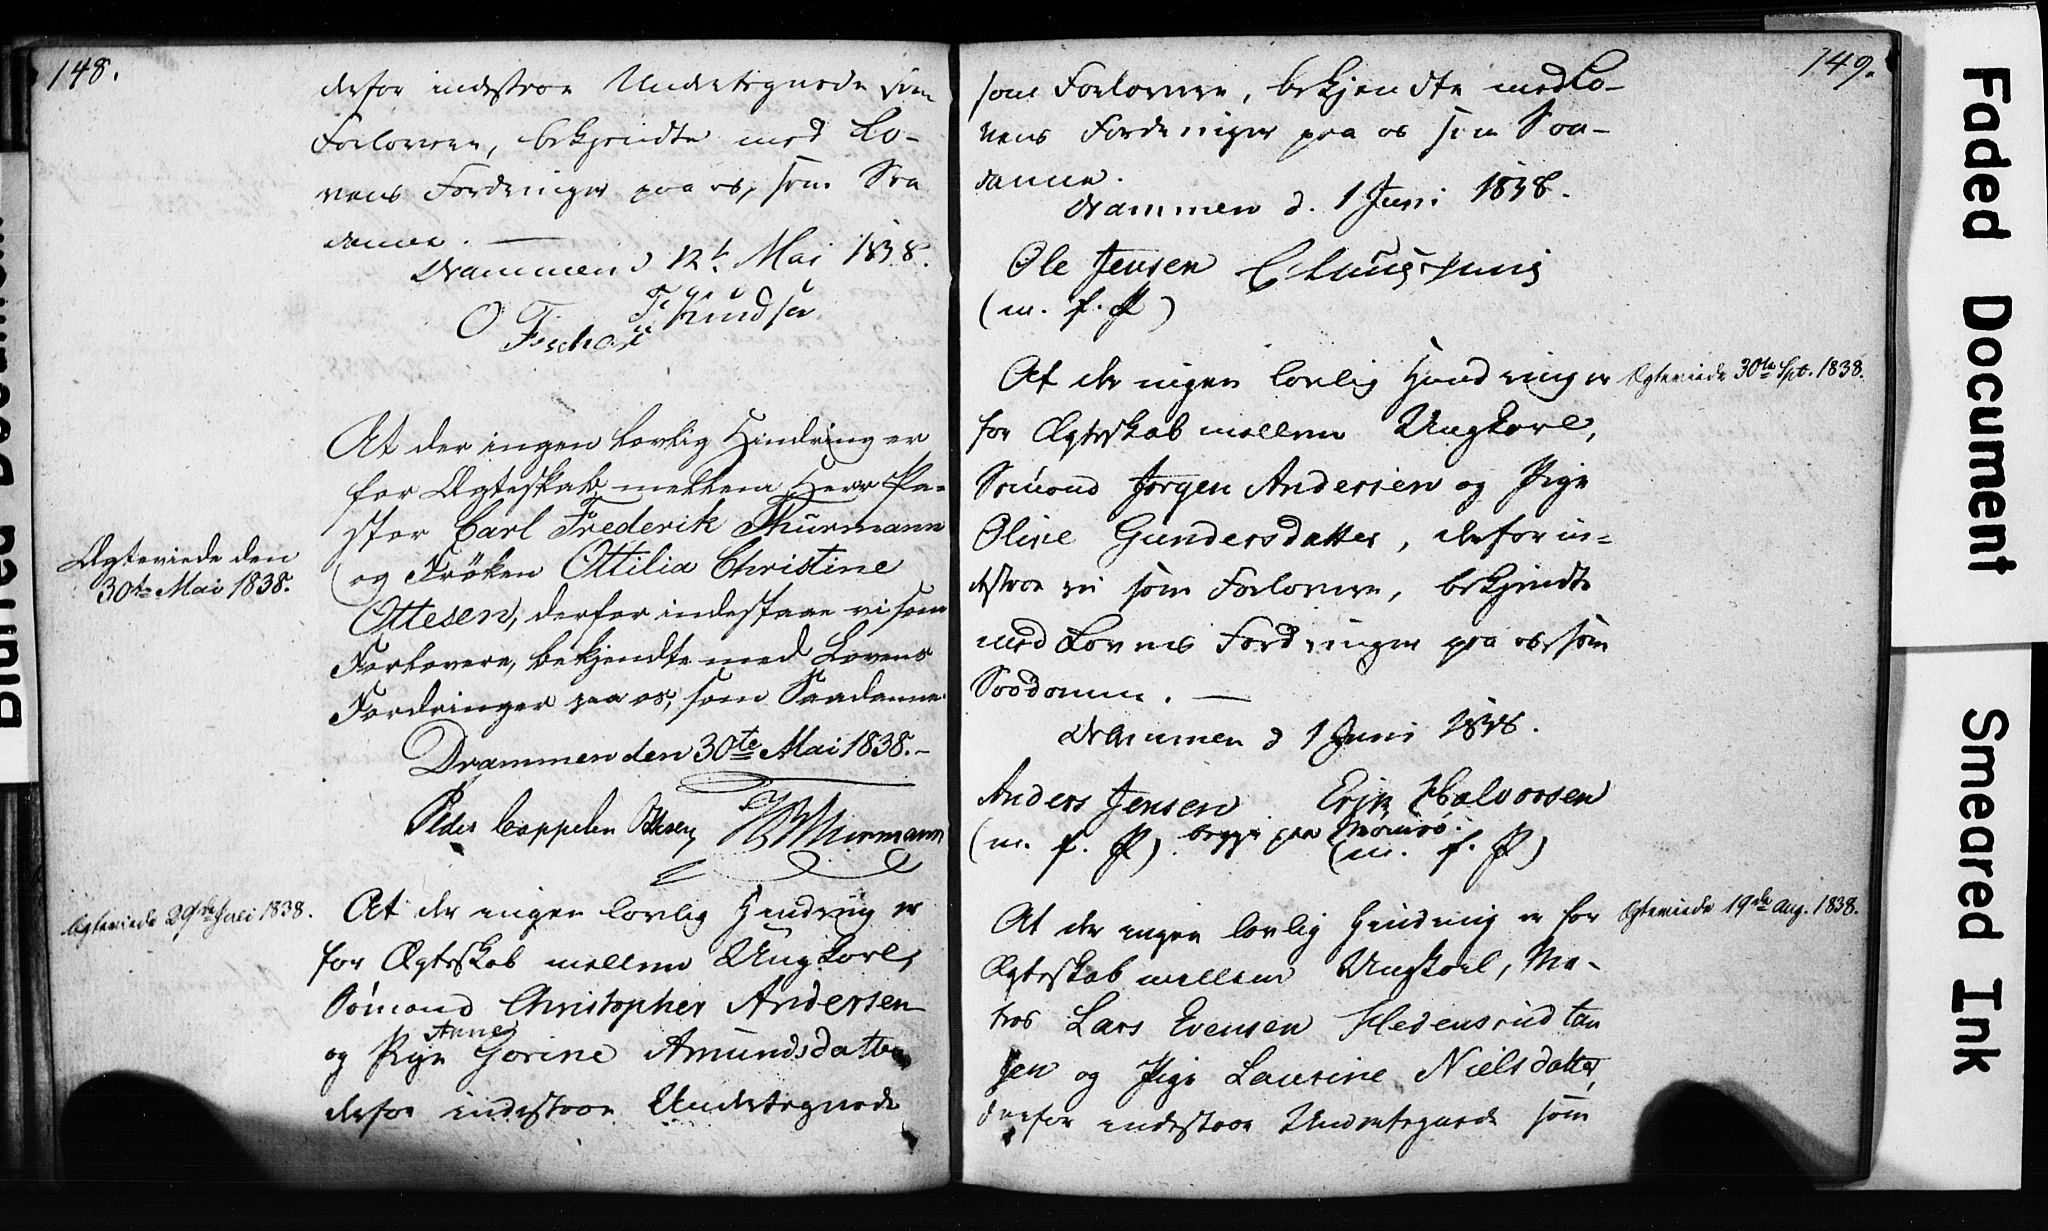 148.
derfor indestaae Undertegnede som
Forlovere, bekjendte med Lo-
vens Fordringer paa os, som Saa
danne. —
Drammen d 12t Mai 1838.
T. Knudsen
O Fischer
At der ingen lovlig Hindring er
for Ægteskab mellem Herr Pa-
stor Carl Frederik Thurmann
og Frøken Ottilia Christine
Ottesen, derfor indestaae vi som
Forlovere, bekjendte med Lovens
Fordringer paa os, som Saadanne.
Drammen den 30te Mai 1838.-
Peder Cappelen Ottesen Thurmann
Ægteviede den
30te Mai 1838.
Ægteviede 29de Juli 1838.
At der ingen lovlig Hindring er
for Ægteskab mellem Ungkarl,
Sømand Christopher Andersen
Anne
og Pige Gorine Amundsdatter
derfor indestaae Undertegnede
149.
som Forlovere, bekjendte med Lo-
vens Fordringer paa os som Saa-
danne.
Drammen d. 1 Juni 1838.
Ole Jensen
(m. f. P)
At der ingen lovlig Hindring er
Ægteviede 30te Spt. 1838.
for Ægteskab mellem Ungkarl,
Sømand Jørgen Andersen og Pige
Oline Gundersdatter, derfor in-
destaae vi som Forlovere, bekjendte
med Lovens Fordringer paa os, som
Saadanne. —
Drammen d 1 Juni 1838.
Anders Jensen Erik Halvorsen
begge paa
(m. f. P) (m. f. P)
At der ingen lovlig Hindring er for
Ægteviede 19de Aug. 1838.
Ægteskab mellem Ungkarl, Ma-
tros Lars Evensen Hedensrudtan
gen og Pige Laurine Nielsdatter,
derfor indestaae Undertegnede som
Faded Document
Smeared Ink